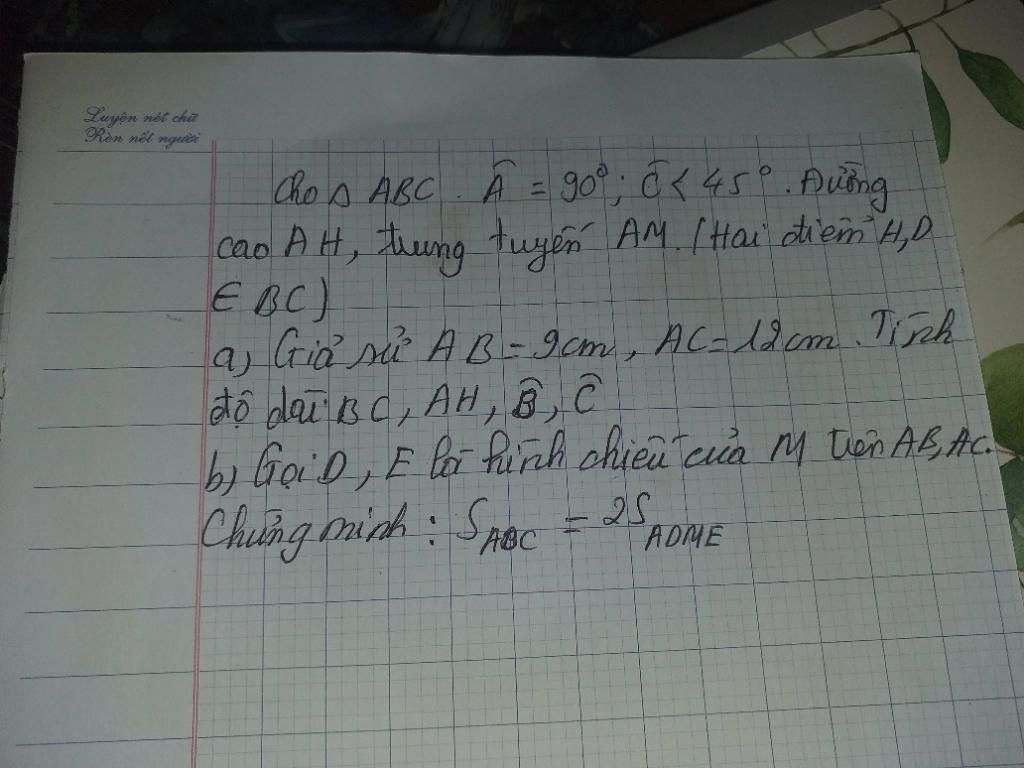 Luyện nét chữ
Rèn nết người
Cho Δ ABC. Â = 90°; Ĉ < 45°. Đường
cao AH, trung tuyến AM. (Hai điểm H, D
∈ BC)
a, Giả sử AB = 9cm, AC = 12cm. Tính
độ dài BC, AH, B̂, Ĉ
b) Gọi D, E là hình chiếu của M trên AB, AC.
Chứng minh: S_ABC = 2S_ADME